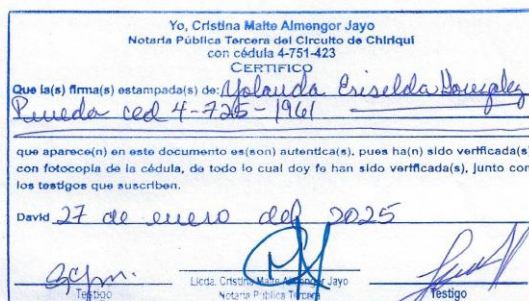 Yo, Cristina Maite Almengor Jayo
Notaria Pública Tercera del Circuito de Chiriquí
con cédula 4-751-423
CERTIFICO
Que la(s) firma(s) estampada(s) de: Yolanda Eriselda González
Pineda ced 4-725-1961
que aparece(n) en este documento es(son) autentica(s), pues ha(n) sido verificada(s)
con fotocopia de la cédula, de todo lo cual doy fe han sido verificada(s), junto con
los testigos que suscriben.
David 27 de enero del 2025
Licda. Cristina Maite Almengor Jayo
Testigo Notaria Pública Tercera Testigo